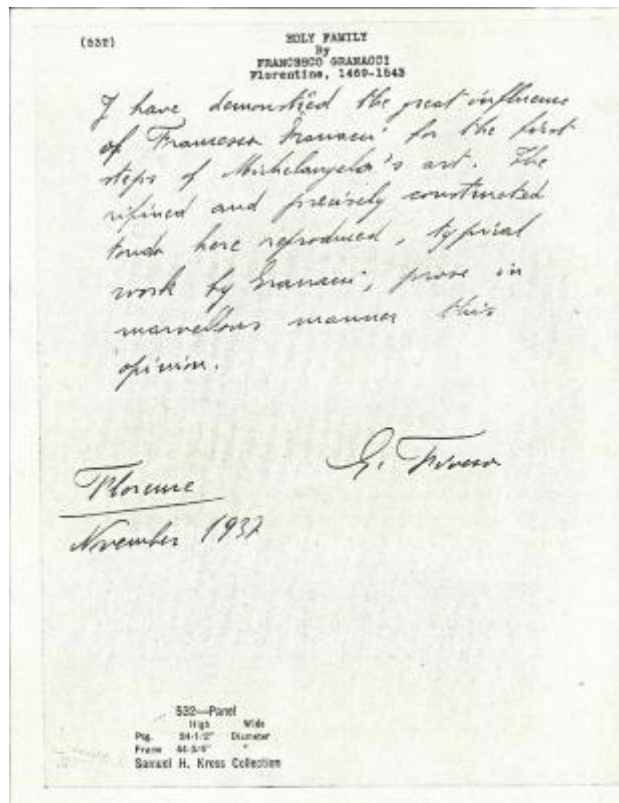 (532)
HOLY FAMILY
By
FRANCESCO GRANACCI
Florentine, 1469-1543
I have demonstried the great influence
of Francesco Granacci for the first
steps of Michelangelo's art. The
rifined and precisely constructed
tondo here reproduced, typical
work by Granacci, prove in
marvellous manner this
opinion.
G. Fiocco
Florence
November 1937
532—Panel
High Wide
Ptg. 34-1/2" Diameter
Frame 44-3/4" "
Samuel H. Kress Collection